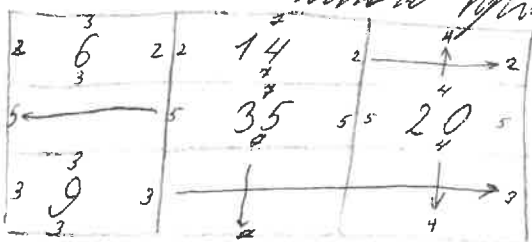 3 7 4
2 6 2 2 14 2 2
3 7 4
7
5 5 35 5 5 20 5
3 7 4
3 9 3 3
3 4